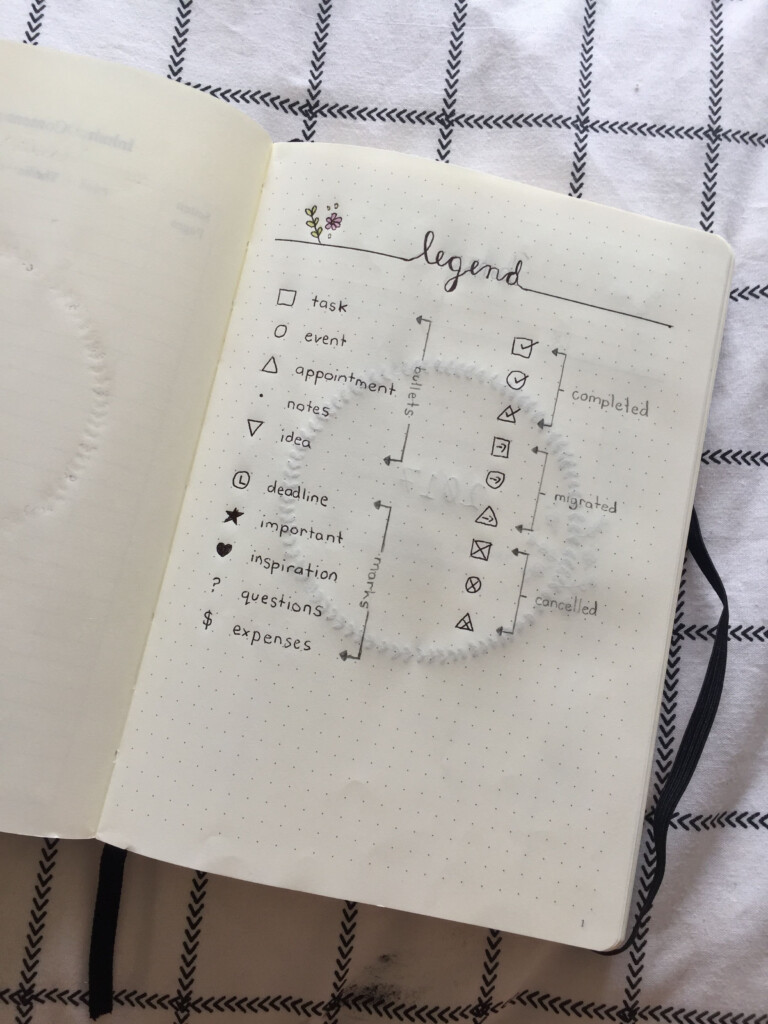 legend
task
event
appointment
notes
idea
bullets
deadline
important
inspiration
? questions
$ expenses
marks
completed
migrated
cancelled
1